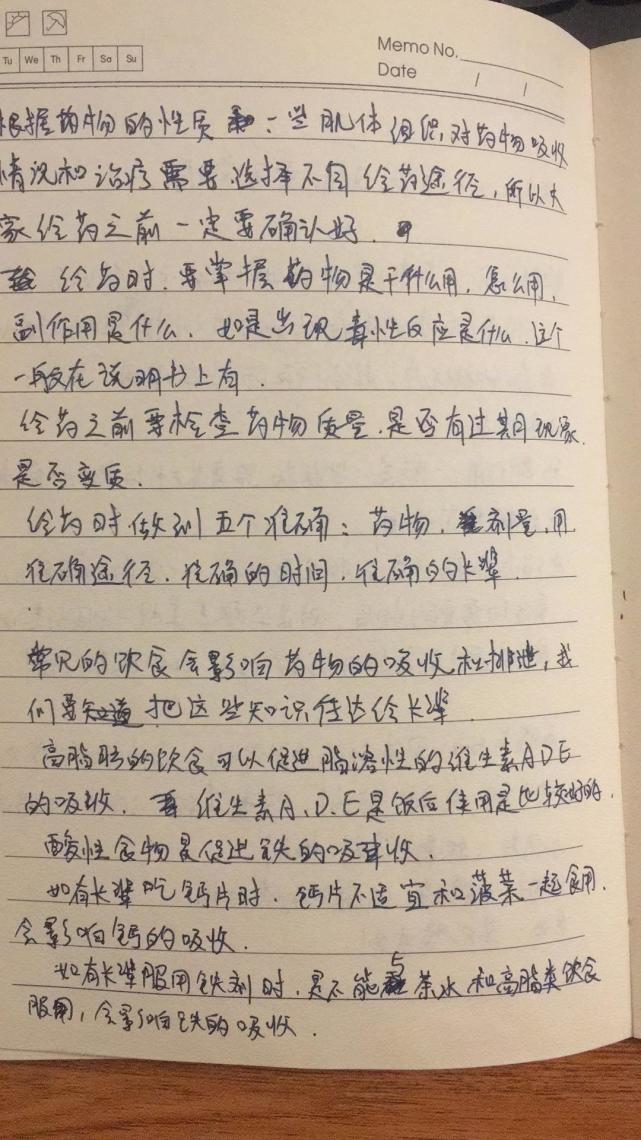 Memo No.
Tu We Th Fr Sa Su
Date / /
根据药物的性质 : 一些肌体组织对药物吸收
情况和治疗需要选择不同给药途径,所以大
家给药之前一定要确认好.
给药时.要掌握药物是干什么用,怎么用,
副作用是什么.如果出现毒性反应是什么.这个
一般在说明书上有.
给药之前要检查药物质量.是否有过期现象.
是否变质.
给药时做到五个准确:药物.剂量.用
准确途径.准确的时间.准确的长辈.
常见的饮食会影响药物的吸收和排泄,我
们要知道把这些知识传达给长辈.
高脂肪的饮食可以促进脂溶性的维生素ADE
的吸收.维生素A.D.E是饭后使用是比较好的.
酸性食物是促进铁的吸收.
如有长辈吃钙片时.钙片不适宜和菠菜一起食用.
会影响钙的吸收.
如有长辈服用铁剂时.是不能与茶水和高脂类饮食
服用,会影响铁的吸收.